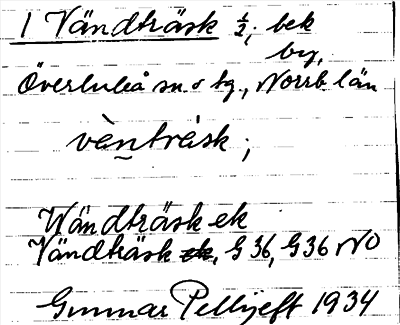 1 Vändträsk ½; bek
by,
Överluleå sn. o tg., Norrb. län
vènträsk;
Wändträsk ek
Vändträsk ek, G 36, G 36 NO
Gunnar Pellijeff 1934